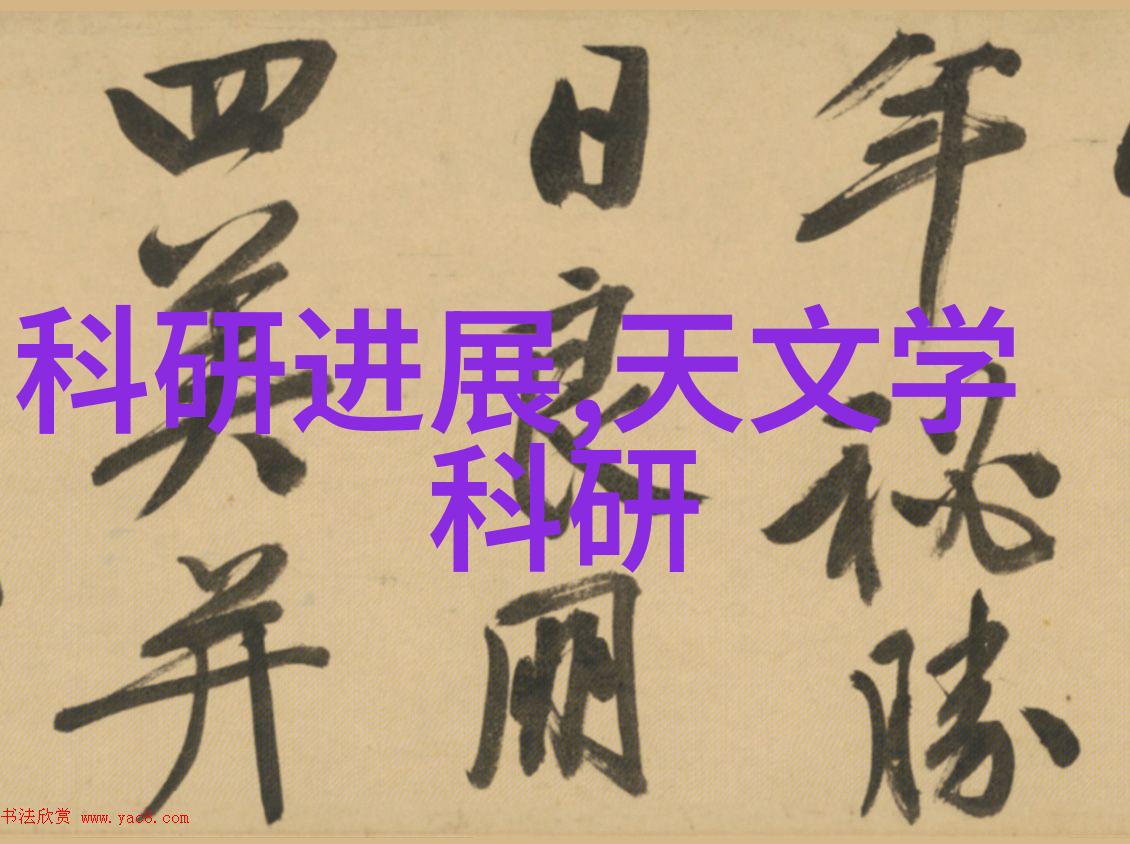 年秘勝
日良朋
四美并
科研进展,天文学
科研
书法欣赏 www.yac8.com